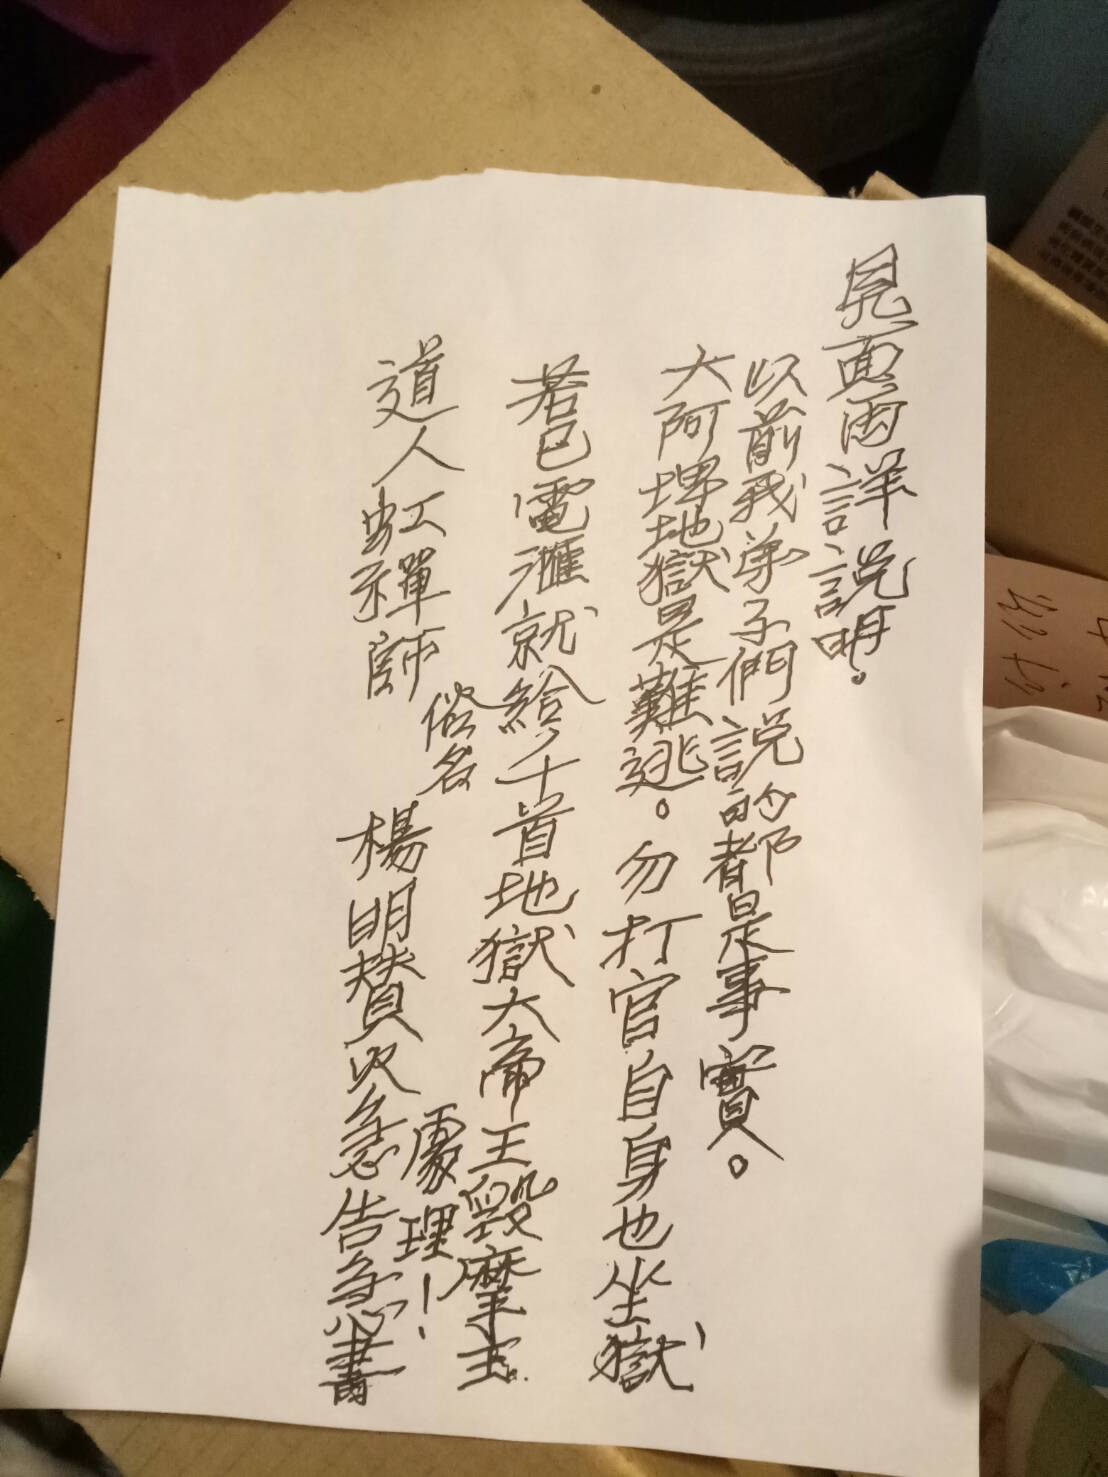 見面再詳說明。
以前我弟子們說的都是事實。
大阿埋地獄是難逃。勿打官自身也坐獄
若已電滙就給千首地獄大帝王毀摩主
處理!
道人虹禪師
俗名
楊明贊火急告急書